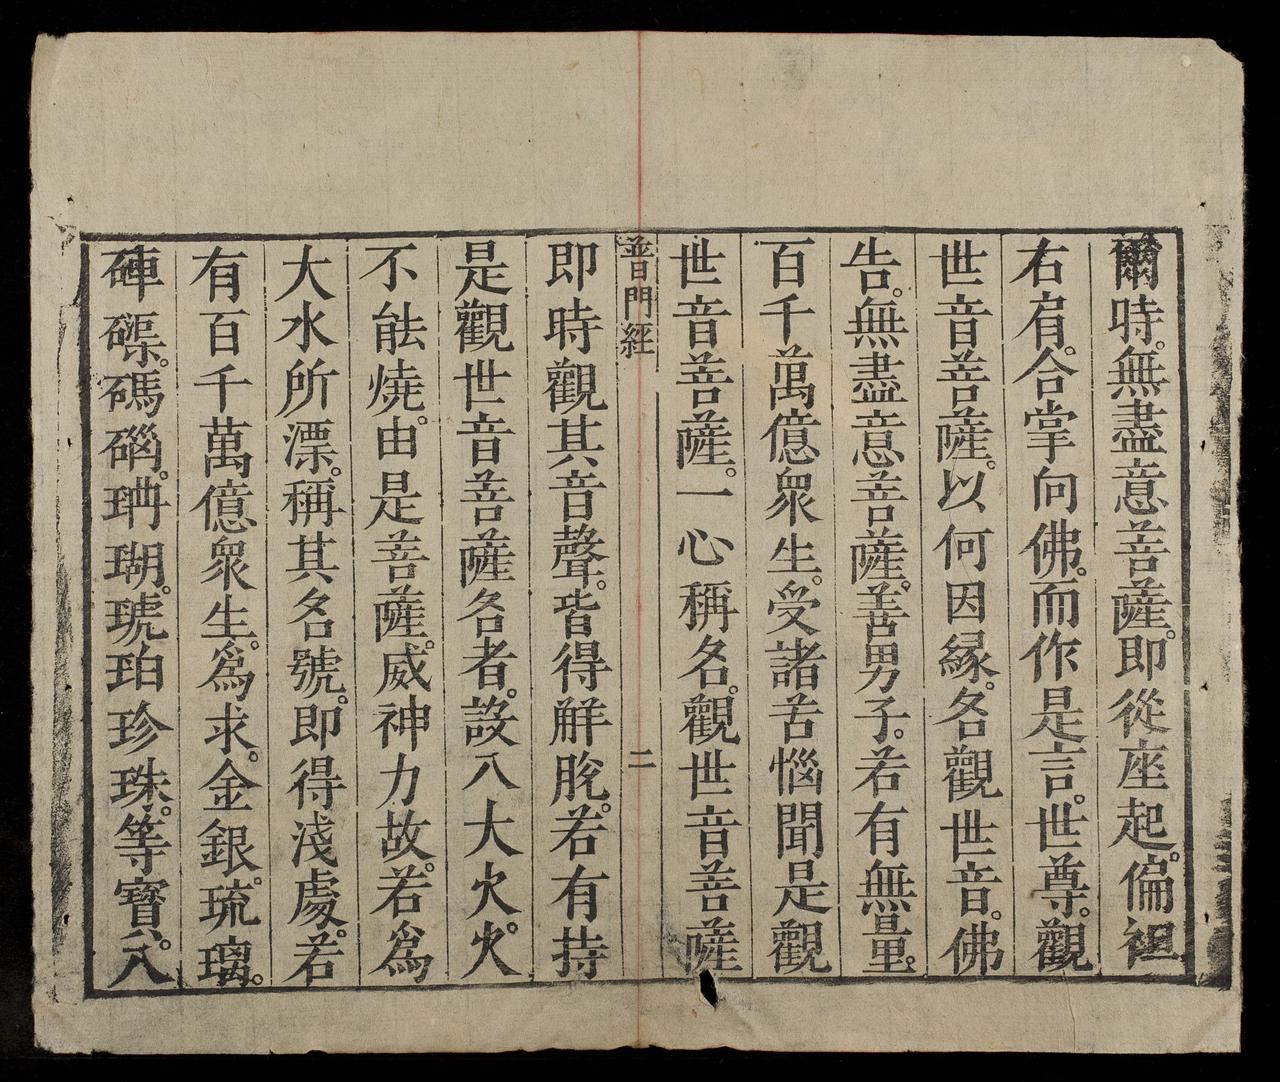 爾時。無盡意菩薩。即從座起。偏袒
右肩。合掌向佛。而作是言。世尊。觀
世音菩薩。以何因緣。名觀世音。佛
告。無盡意菩薩。善男子。若有無量。
百千萬億衆生。受諸苦惱聞是觀
世音菩薩。一心稱名。觀世音菩薩
普門經 二
即時觀其音聲。皆得解脫。若有持
是觀世音菩薩名者。設入大火。火
不能燒。由是菩薩。威神力故。若爲
大水所漂。稱其名號。即得淺處。若
有百千萬億衆生。爲求。金銀。琉璃。
硨磲。碼碯。珊瑚。琥珀珍珠。等寶。入